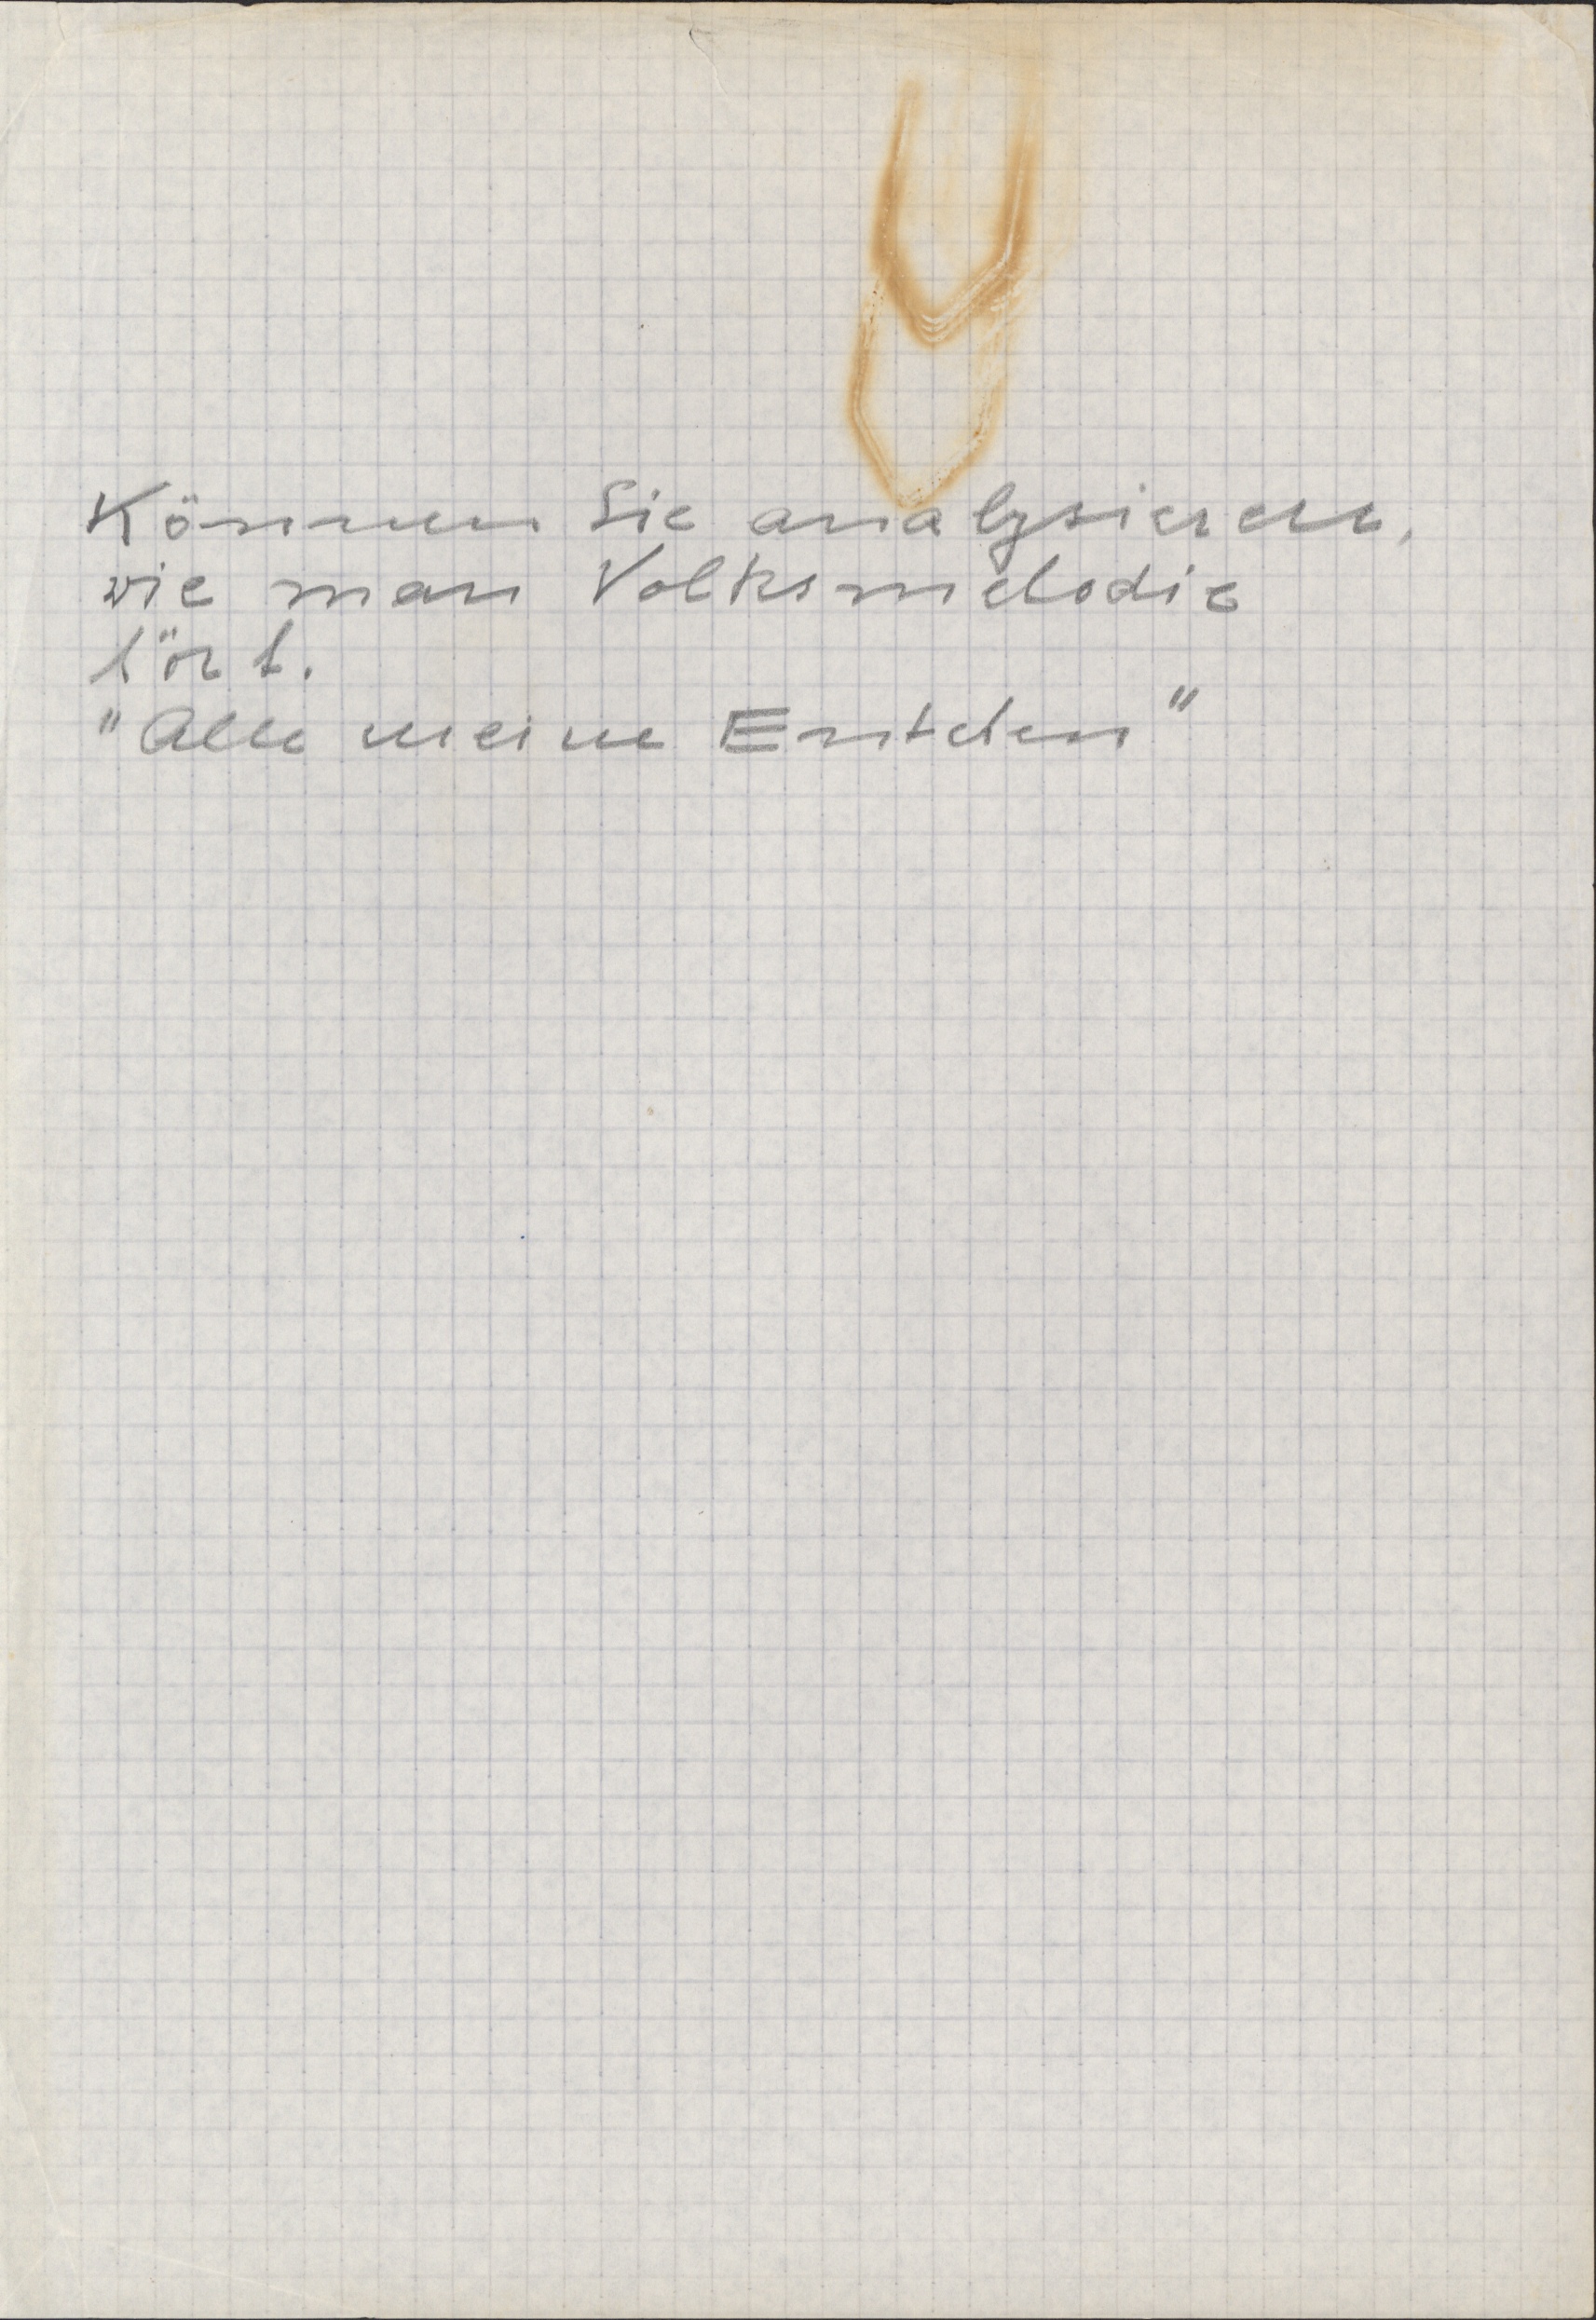 Können Sie analysieren,
wie man Volksmelodie
hört.
"Alle meine Entchen"